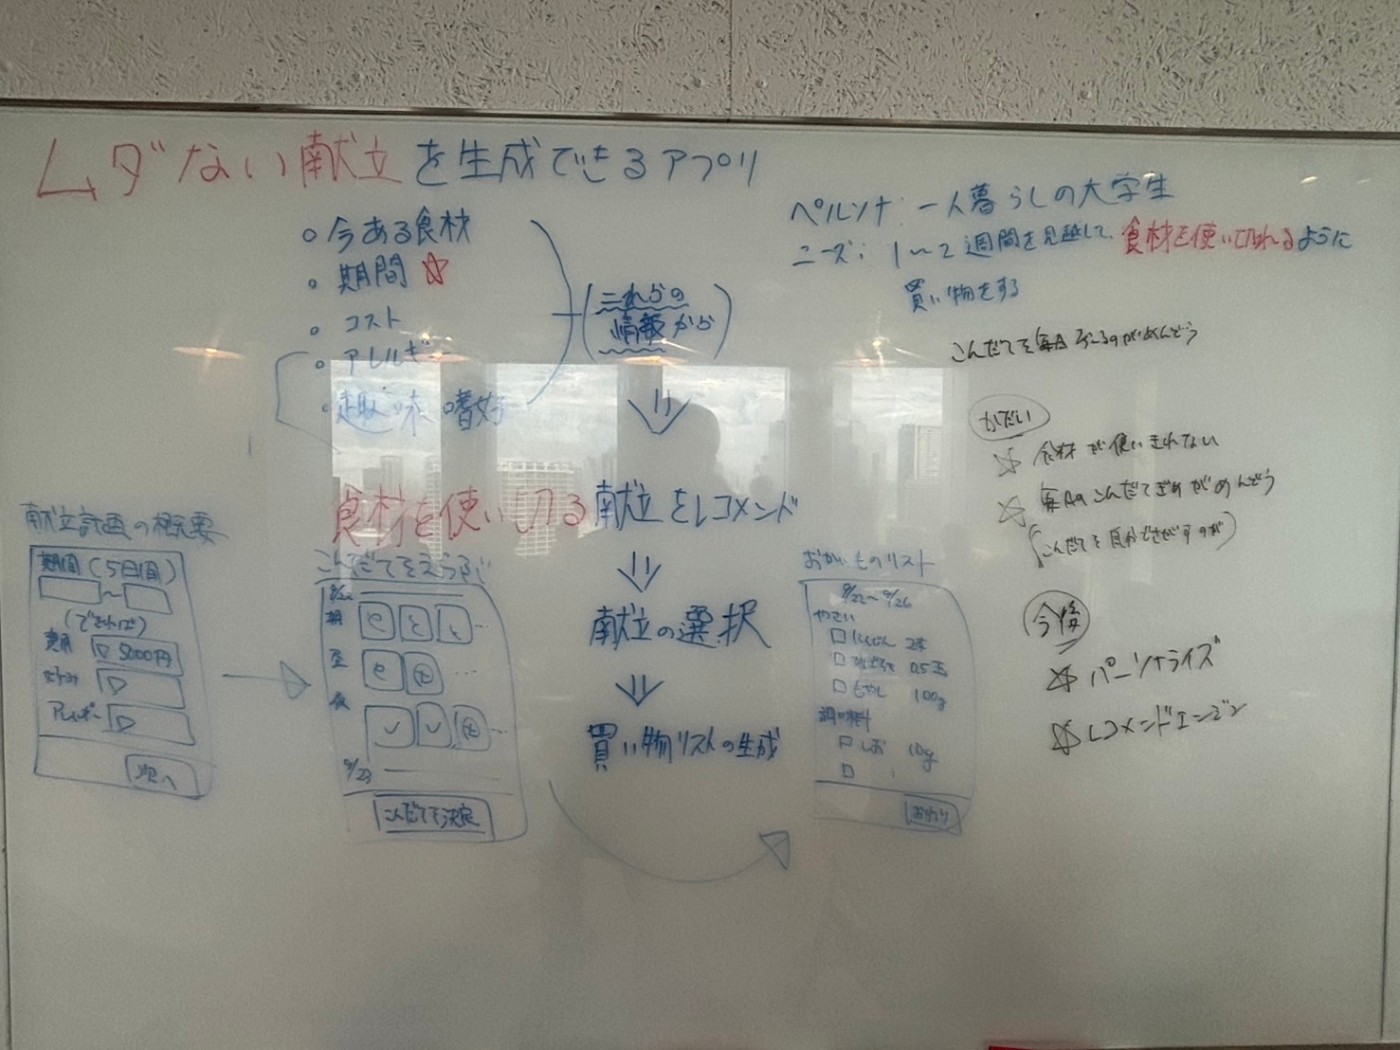 ムダない献立を生成できるアプリ
今ある食材
期間 ☆
コスト
アレルギー
趣味嗜好
(これらの
情報から)
食材を使い切る献立をレコメンド
献立の選択
買い物リストの生成
ペルソナ: 一人暮らしの大学生
ニーズ: 1〜2週間を見越して、食材を使い切れるように
買い物をする
こんだてを毎日考えるのがめんどう
かだい
☆ 食材が使いきれない
☆ 毎日のこんだてぎめがめんどう
(こんだてを自分でさがすのが)
今後
☆ パーソナライズ
☆ レコメンドエンジン
献立計画の概要
期間 (5日間)
〜
(できれば)
費用 ▽ 5000円
▽
アレルギー ▽
次へ
こんだてをえらぶ
9/22
朝
昼
夜
9/23
こんだてを決定
おかいものリスト
9/22〜9/26
やさい
□ にんじん 2本
□ 0.5玉
□ もやし 100g
調味料
□ しお 10g
□
おわり